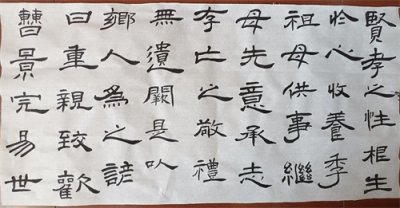 賢孝之性根生
於心收養季
祖母供事繼
母先意承志
存亡之敬禮
無遺闕是以
鄉人為之諺
曰重親致歡
曹景完易世